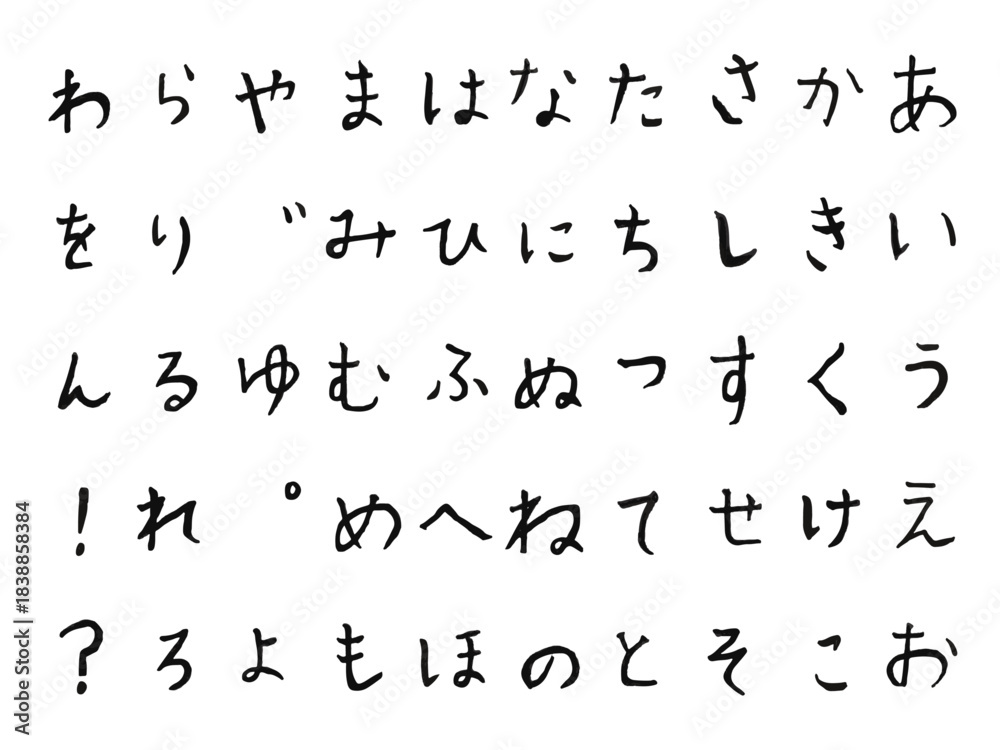 わらやまはなたさかあ
をり゛みひにちしきい
んるゆむふぬつすくう
！れ゜めへねてせけえ
？ろよもほのとそこお
Adobe Stock | #1838858384